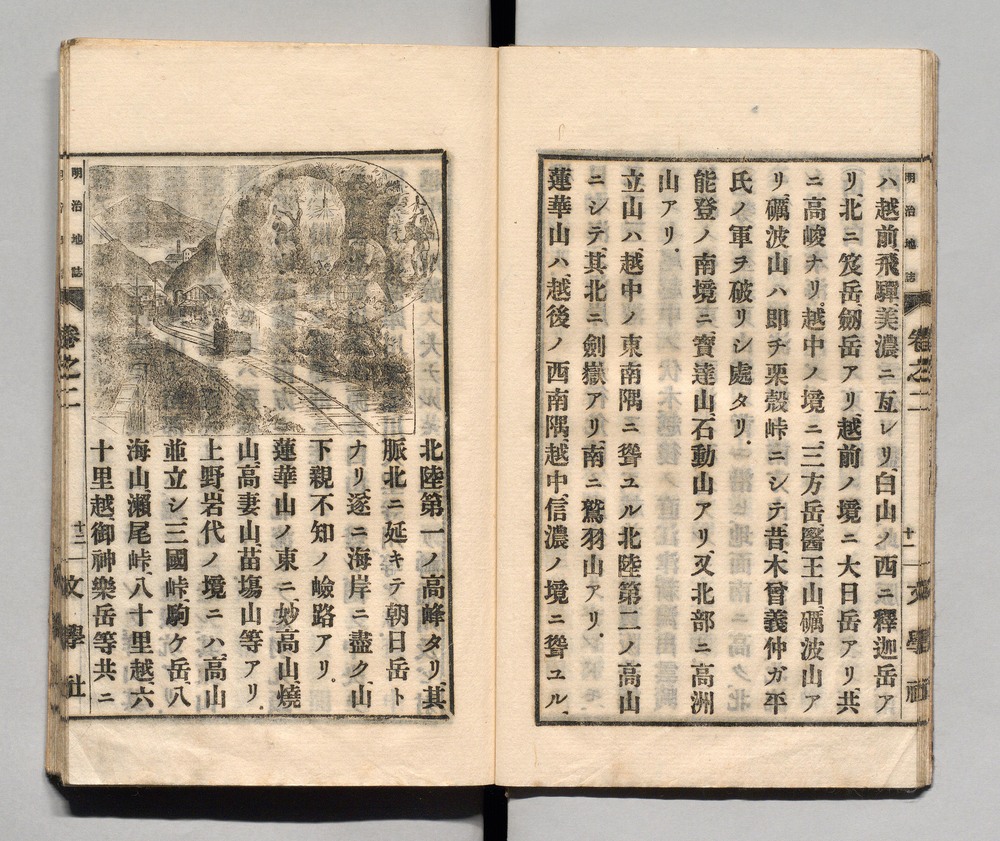 明治地誌 卷之二 十一 文學社
ハ越前、飛驒、美濃ニ亙レリ、白山ノ西ニ釋迦岳ア
リ、北ニ笈岳、劒岳アリ、越前ノ境ニ大日岳アリ、共
ニ高峻ナリ、越中ノ境ニ、三方岳、醫王山、礪波山ア
リ、礪波山ハ即チ栗殻峠ニシテ、昔木曾義仲ガ平
氏ノ軍ヲ破リシ處タリ、
能登ノ南境ニ、寶達山、石動山アリ、又北部ニ高洲
山アリ、
立山ハ、越中ノ東南隅ニ聳ユル北陸第二ノ高山
ニシテ、其北ニ劍嶽アリ、南ニ鷲羽山アリ、
蓮華山ハ、越後ノ西南隅、越中、信濃ノ境ニ聳ユル、
北陸第一ノ高峰タリ、其
脈北ニ延キテ朝日岳ト
ナリ、遂ニ海岸ニ盡ク、山
下親不知ノ嶮路アリ、
蓮華山ノ東ニ、妙高山、燒
山、高妻山、苗塲山等アリ、
上野岩代ノ境ニハ、高山
並立シ、三國峠、駒ケ岳、八
海山、瀨尾峠、八十里越、六
十里越、御神樂岳等共ニ
明治地誌 卷之二 十二 文學社